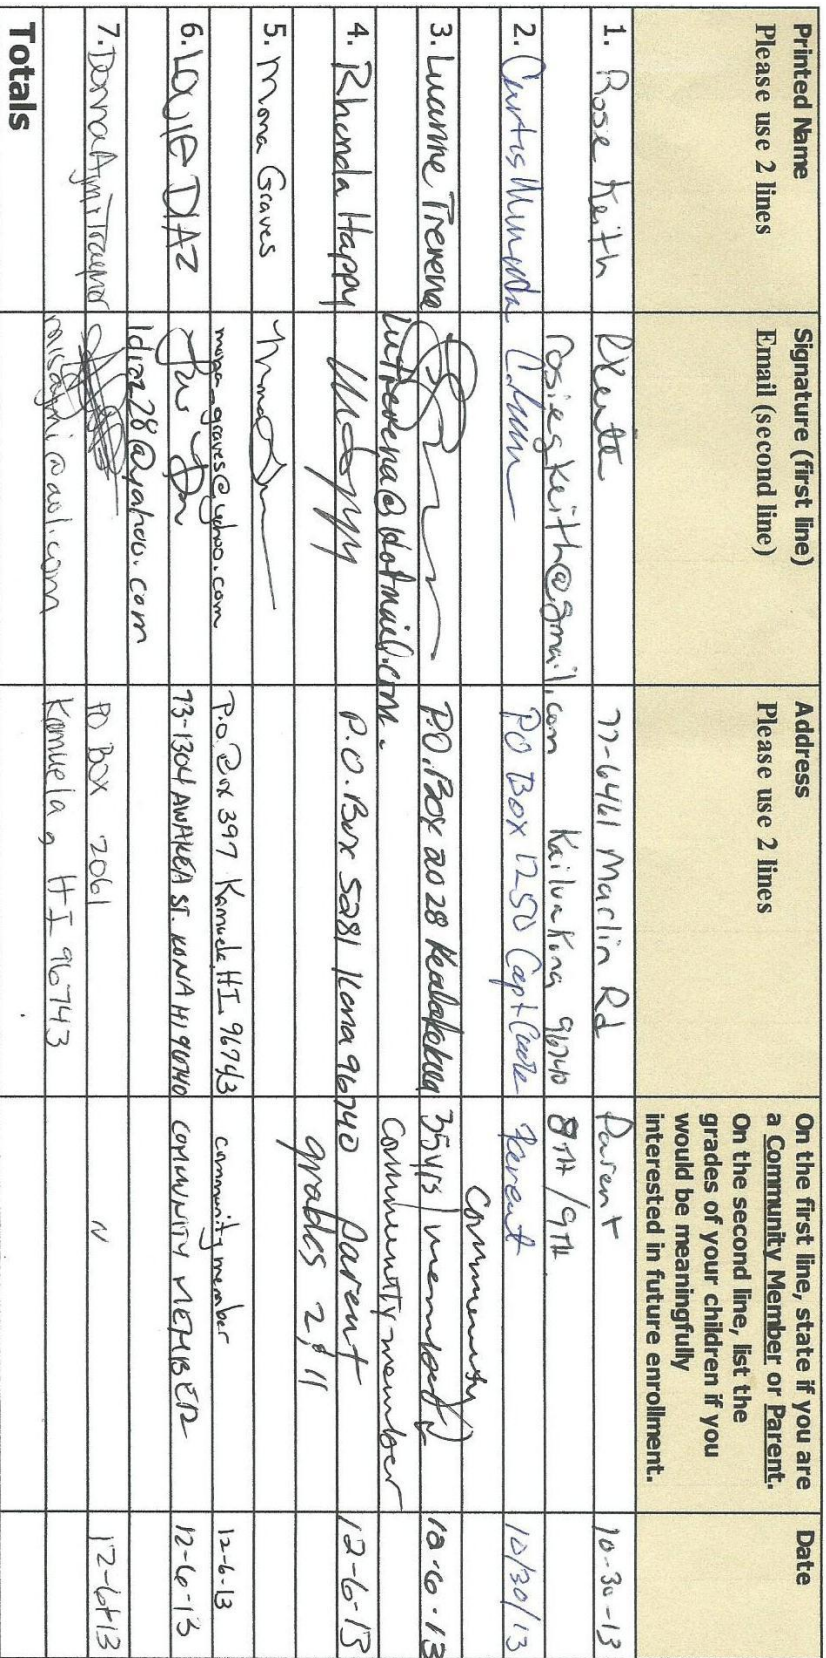 Printed Name
Please use 2 lines
Signature (first line)
Email (second line)
Address
Please use 2 lines
On the first line, state if you are
a Community Member or Parent.
On the second line, list the
grades of your children if you
would be meaningfully
interested in future enrollment.
Date
1. Rose Keith RKeith 77-6461 Marlin Rd Parent 10-30-13
rosiegkeith@gmail.com Kailua Kona 96740 8TH/9TH
2. Curtis PO Box 1250 Capt Cook Parent 10/30/13
Community
3. Luanne Trevena P.O. Box 2028 Kealakekua 35yrs member 12-6-13
lutrevena@hotmail.com. Community member
4. Rhonda Happy P.O. Box 5281 Kona 96740 parent 12-6-13
grades 2, 11
5. Mona Graves
mona_graves@yahoo.com P.O. Box 397 Kamuela HI 96743 community member 12-6-13
6. LOUIE DIAZ 73-1304 AWAKEA ST. KONA HI 96740 COMMUNITY MEMBER 12-6-13
ldiaz28@yahoo.com
7. Donna PO BOX 2061 12-6-13
misaymi@aol.com Kamuela, HI 96743
Totals